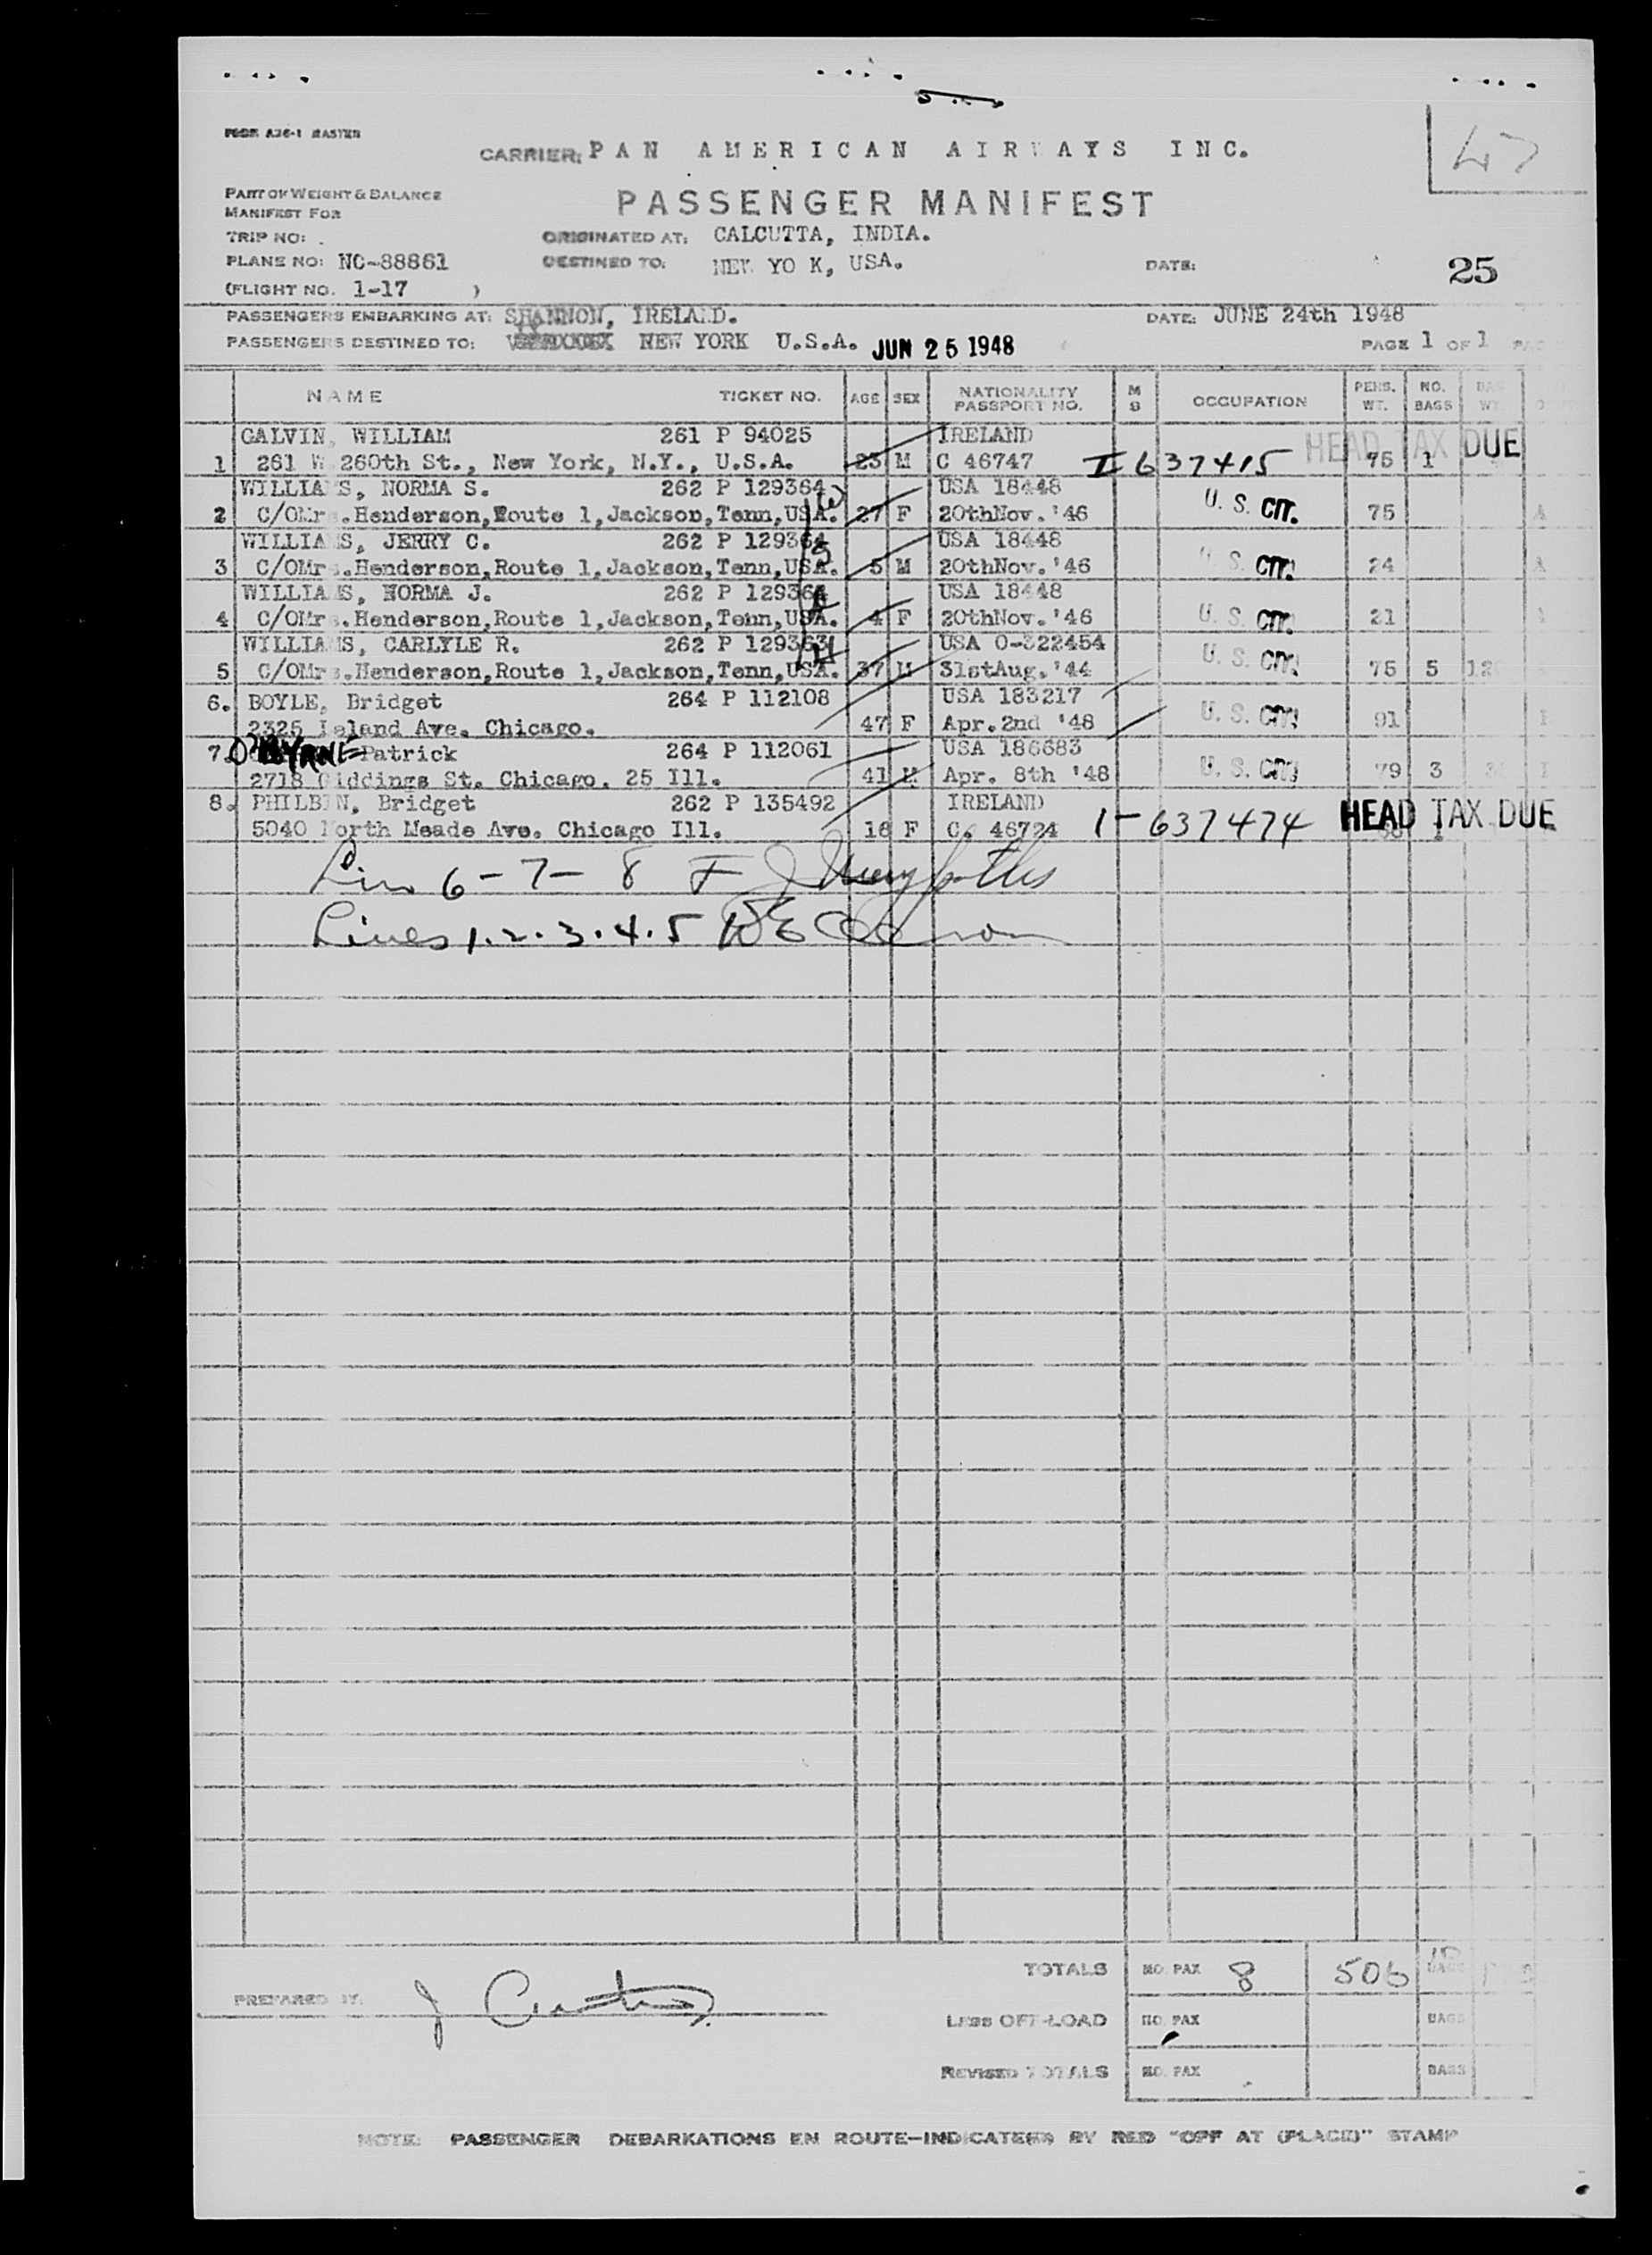 FORM A36-1 MASTER
CARRIER: PAN AMERICAN AIRWAYS INC.
47
PART OF WEIGHT & BALANCE
MANIFEST FOR
PASSENGER MANIFEST
TRIP NO:
ORIGINATED AT: CALCUTTA, INDIA.
PLANE NO: NC-88861
DESTINED TO: NEW YO K, USA.
DATE:
25
(FLIGHT NO. 1-17 )
PASSENGERS EMBARKING AT: SHANNON, IRELAND.
DATE: JUNE 24th 1948
PASSENGERS DESTINED TO: NEW YORK U.S.A. JUN 25 1948
PAGE 1 OF 1
NAME TICKET NO. AGE SEX NATIONALITY PASSPORT NO. M S OCCUPATION PERS. WT. NO. BAGS BAG WT
GALVIN, WILLIAM 261 P 94025 IRELAND HEAD TAX DUE
1 261 W 260th St., New York, N.Y., U.S.A. 23 M C 46747 I 637415 75 1
WILLIAMS, NORMA S. 262 P 129364 USA 18448
2 C/OMrs.Henderson,Route 1,Jackson,Tenn,USA. 27 F 20thNov.'46 U. S. CIT. 75
WILLIAMS, JERRY C. 262 P 129364 USA 18448
3 C/OMrs.Henderson,Route 1,Jackson,Tenn,USA. 5 M 20thNov.'46 U. S. CIT. 24
WILLIAMS, NORMA J. 262 P 129364 USA 18448
4 C/OMrs.Henderson,Route 1,Jackson,Tenn,USA. 4 F 20thNov.'46 U. S. CIT. 21
WILLIAMS, CARLYLE R. 262 P 129363 USA O-322454
5 C/OMrs.Henderson,Route 1,Jackson,Tenn,USA. 37 M 31stAug.'44 U. S. CIT. 75 5
6. BOYLE, Bridget 264 P 112108 USA 183217
2325 Leland Ave. Chicago. 47 F Apr.2nd '48 U. S. CIT. 91
7. O'BYRNE Patrick 264 P 112061 USA 186683
2718 Giddings St. Chicago. 25 Ill. 41 M Apr. 8th '48 U. S. CIT. 79 3
8. PHILBIN, Bridget 262 P 135492 IRELAND HEAD TAX DUE
5040 North Meade Ave. Chicago Ill. 18 F C. 46724 1-637474
Line 6-7-8 F J
Lines 1.2.3.4.5 WE
TOTALS NO. PAX 8 506 BAGS
PREPARED BY: J Curtis
LESS OFF-LOAD NO. PAX BAGS
REVISED TOTALS NO. PAX BAGS
NOTE: PASSENGER DEBARKATIONS EN ROUTE-INDICATED BY RED "OFF AT (PLACE)" STAMP